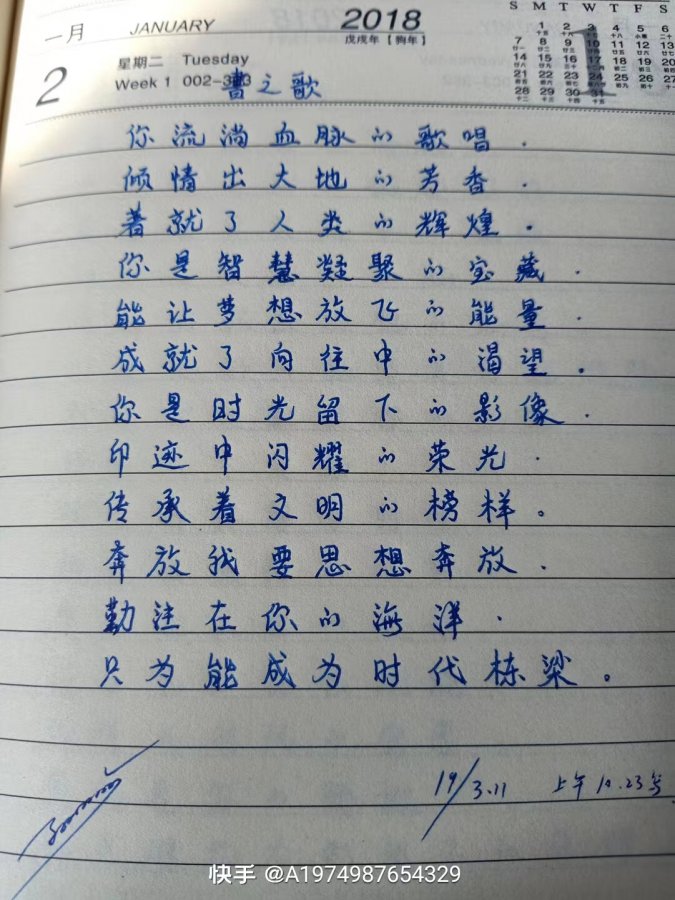 一月 JANUARY 2018
戊戌年【狗年】
2 星期二 Tuesday
Week 1 002-363
S M T W T F S
1 2 3 4 5 6
7 8 9 10 11 12 13
14 15 16 17 18 19 20
21 22 23 24 25 26 27
28 29 30 31
書之歌
你流淌血脉的歌唱.
倾情出大地的芳香.
著就了人类的辉煌。
你是智慧凝聚的宝藏.
能让梦想放飞的能量.
成就了向往中的渴望。
你是时光留下的影像.
印迹中闪耀的荣光.
传承着文明的榜样。
奔放我要思想奔放.
勤注在你的海洋.
只为能成为时代栋梁。
19/3.11 上午10.23
快手 @A1974987654329